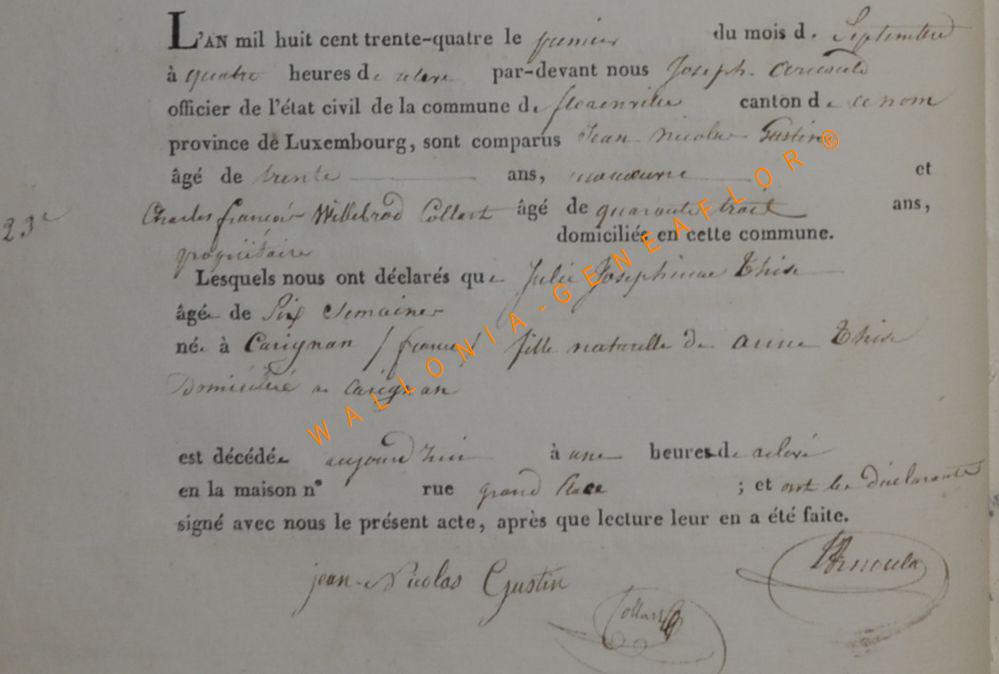 L'AN mil huit cent trente-quatre le premier du mois de Septembre
à quatre heures de relevé par-devant nous Joseph Arnould
officier de l'état civil de la commune de florenville canton de ce nom
province de Luxembourg, sont comparus Jean Nicolas Gustin
âgé de trente ans, manœuvre et
23e Charles françois Willebrod Collart âgé de quarante trois ans,
propriétaire domiciliés en cette commune.
Lesquels nous ont déclarés que Julie Josephinne Thise
âgée de Six Semaines
née à Carignan (france) fille naturelle de anne Thise
Domiciliée a Carignan
est décédée aujourd'hui à une heures de relevé
en la maison n° rue grand Place ; et ont les déclarants
signé avec nous le présent acte, après que lecture leur en a été faite.
jean-Nicolas Gustin
Collart
JArnould
WALLONIA-GENEAFLOR®